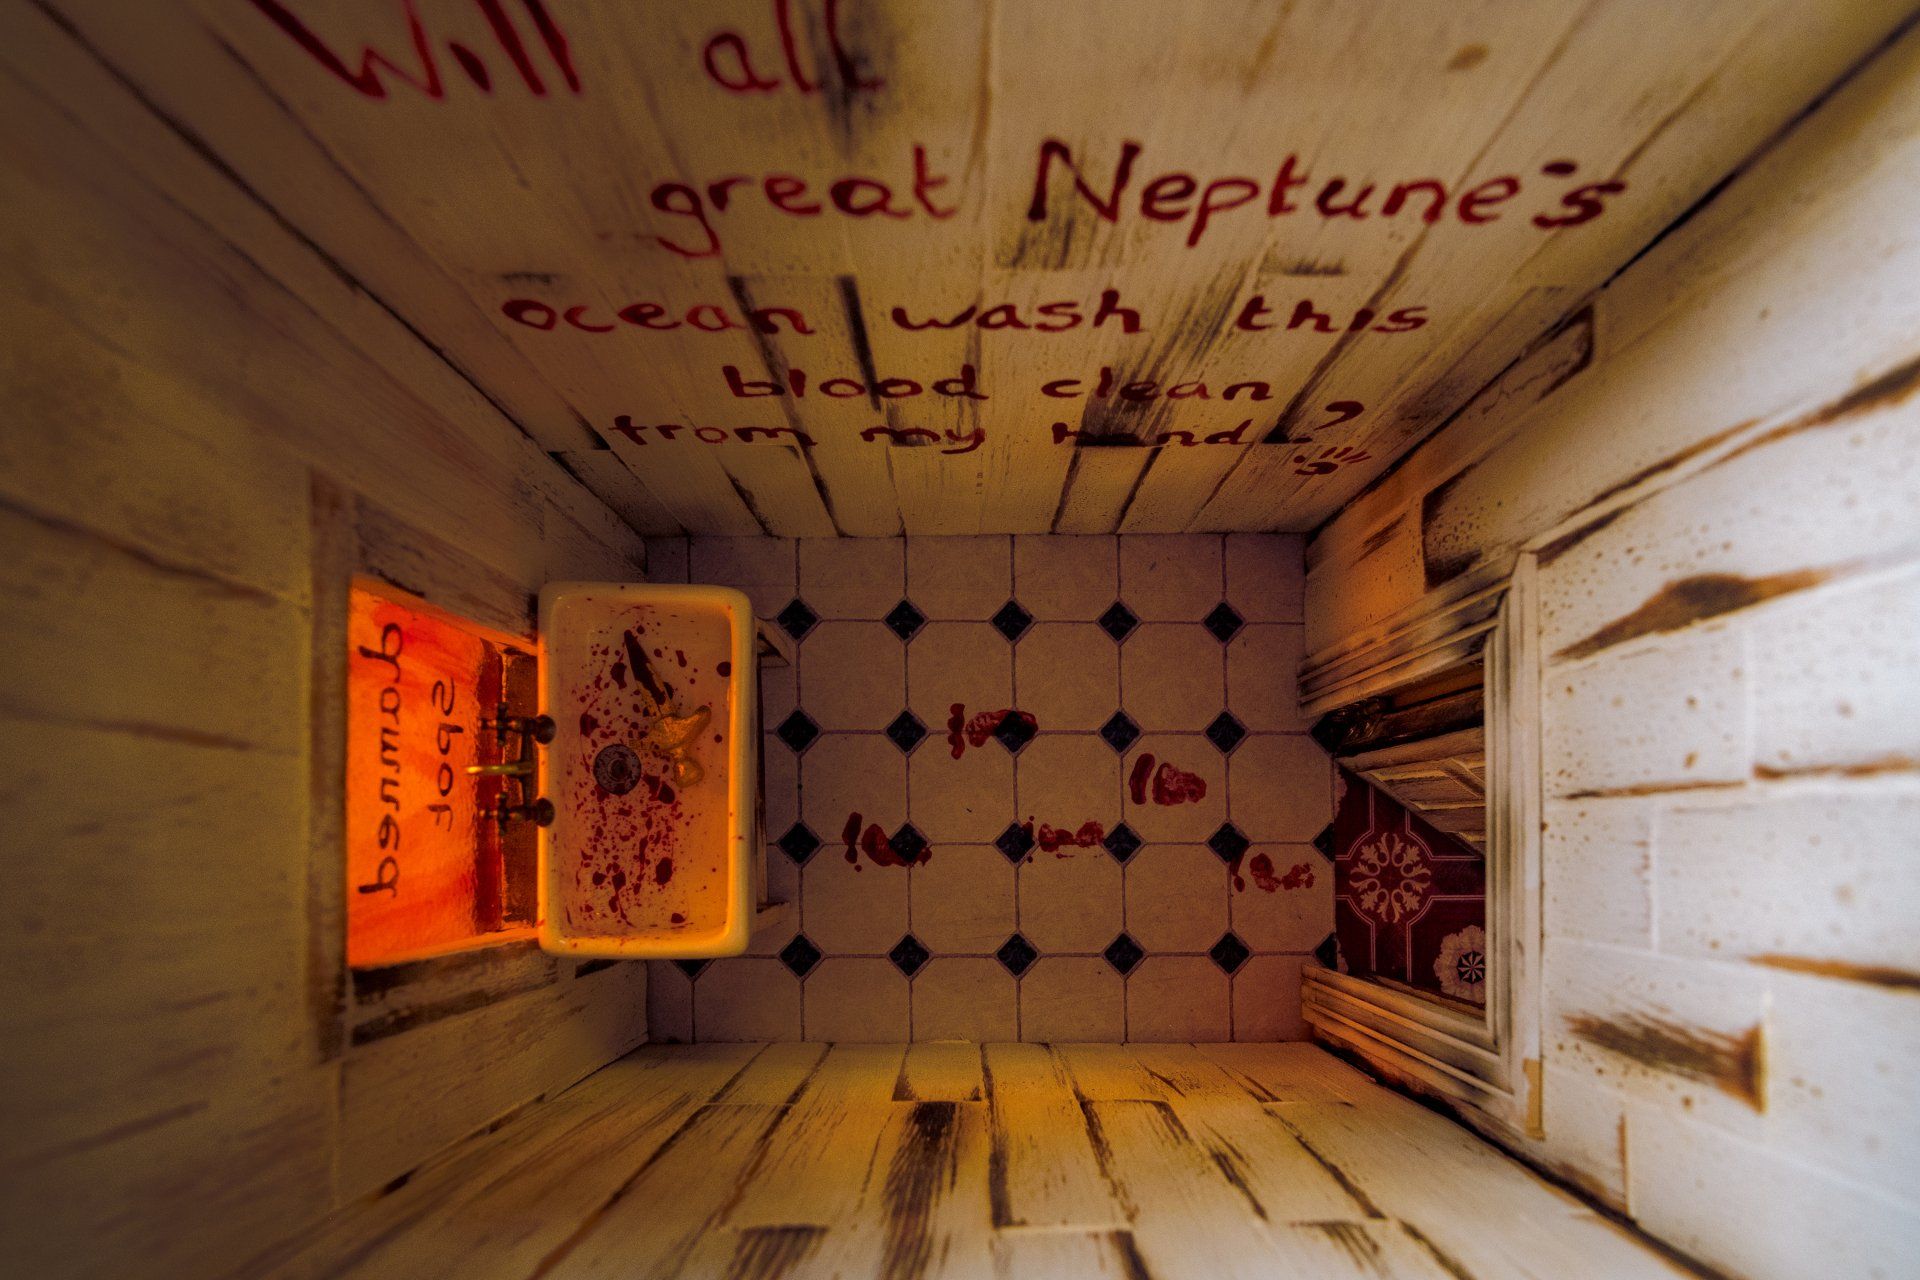 Will all
great Neptune's
ocean wash this
blood clean
from my hand?
damned
spot